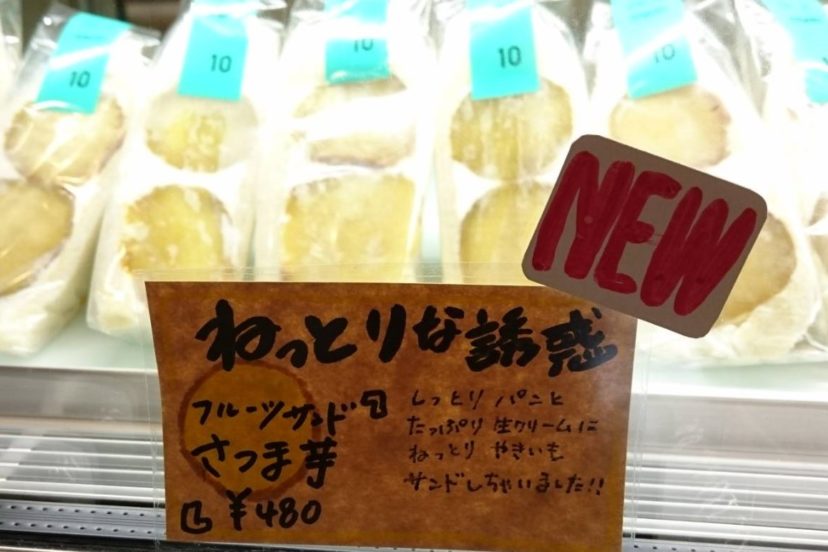 10
10
10
10
10
NEW
ねっとりな誘惑
フルーツサンド
さつま芋
¥480
しっとり パンと
たっぷり 生クリームに
ねっとり やきいも
サンドしちゃいました!!